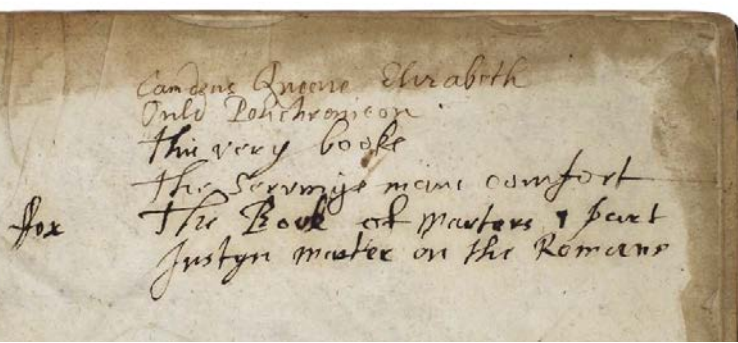 Camdens Queene Elizabeth
Ould Polichronicon
this very booke
the Servinge mans comfort
ffox The Book of Marters 1 part
Justyn on the Romans